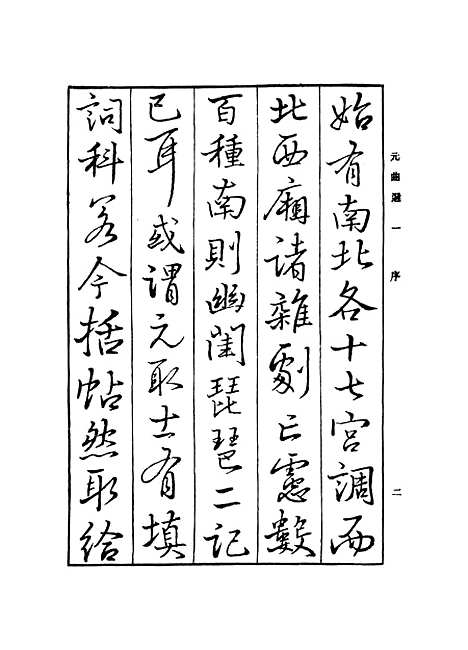 元曲選一 序 二
始有南北各十七宮調而
北西廂諸雜劇亡慮數
百種南則幽閨琵琶二記
已耳或謂元取士有填
詞科若今括帖然取給